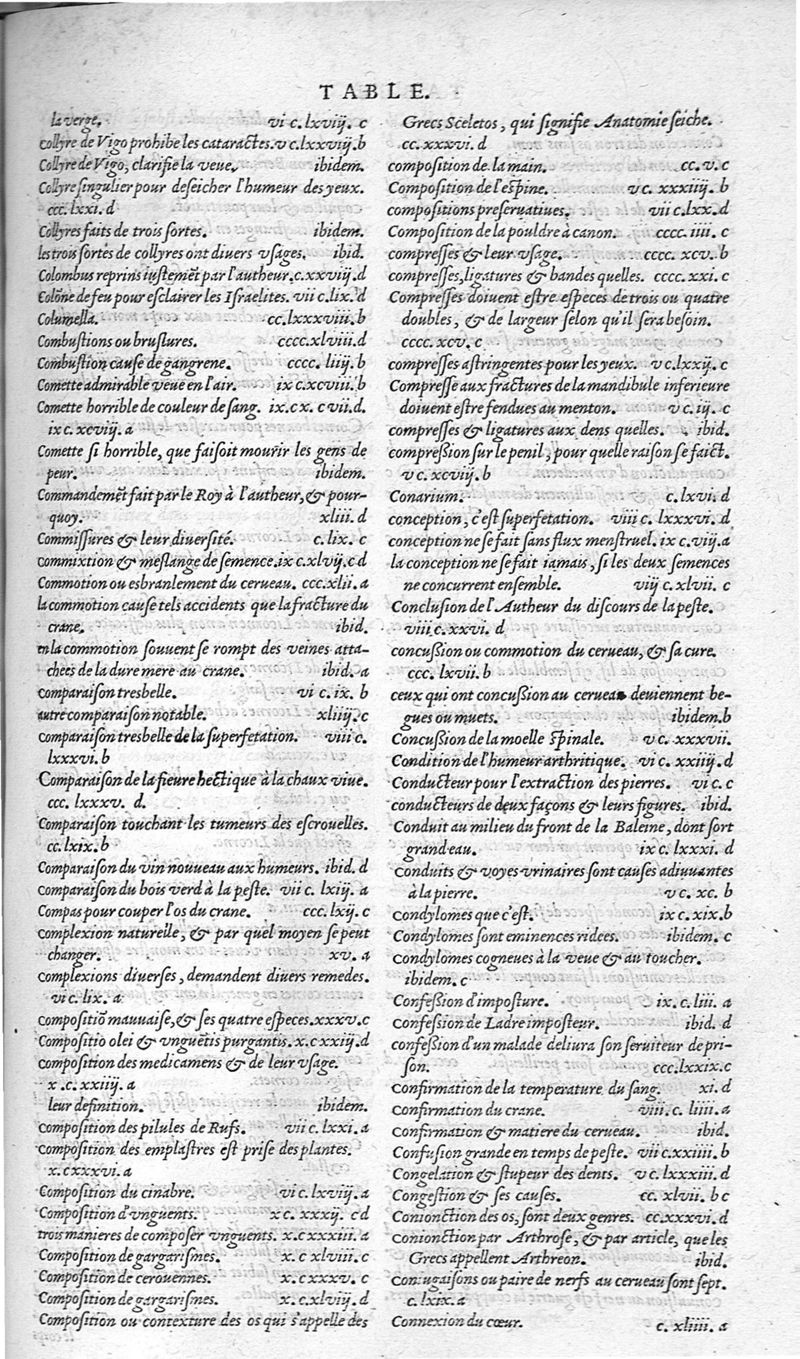 TABLE.
la verge. vi c.lxviij. c
Collyre de Vigo prohibe les cataractes. v c.lxxviij.b
Collyre de Vigo, clarifie la veue. ibidem.
Collyre singulier pour deseicher l'humeur des yeux.
ccc.lxxi.d
Collyres faits de trois sortes. ibidem.
les trois sortes de collyres ont diuers vsages. ibid.
Colombus reprins iustemēt par l'autheur.c.xxviij.d
Colōne de feu pour esclairer les Israelites. vii c.lix.d
Columella. cc.lxxxviii.b
Combustions ou bruslures. cccc.xlviii.d
Combustion cause de gangrene. cccc. liiij.b
Comette admirable veue en l'air. ix c.xcviii.b
Comette horrible de couleur de sang. ix.c x. c vii.d.
ix c.xcviij.a
Comette si horrible, que faisoit mourir les gens de
peur. ibidem.
Commandemēt fait par le Roy à l'autheur,& pour-
quoy. xliii.d
Commissures & leur diuersité. c.lix. c
commixtion & meslange de semence.ix c.xlvij.c d
Commotion ou esbranlement du cerueau. ccc.xlii.a
la commotion cause tels accidents que la fracture du
crane. ibid.
en la commotion souuent se rompt des veines atta-
chees de la dure mere au crane. ibid. a
comparaison tresbelle. vi c.ix. b
autre comparaison notable. xliij.c
comparaison tresbelle de la superfetation. viii c.
lxxxvi.b
Comparaison de la fieure hectique à la chaux viue.
ccc. lxxxv. d.
Comparaison touchant les tumeurs des escrouelles.
cc.lxix.b
Comparaison du vin nouueau aux humeurs. ibid.d
comparaison du bois verd à la peste. vii c.lxij. a
Compas pour couper l'os du crane. ccc.lxij.c
complexion naturelle, & par quel moyen se peut
changer. xv. a
complexions diuerses, demandent diuers remedes.
vi c. lix. a
compositiō mauuaise,& ses quatre especes.xxxv.c
Compositio olei & vnguētis purgantis. x.c xxiij.d
composition des medicamens & de leur vsage.
x .c.xxiiij.a
leur definition. ibidem.
composition des pilules de Rufs. vii c.lxxi.a
composition des emplastres est prise des plantes.
x.cxxxvi.a
Composition du cinabre. vi c.lxviij.a
Composition d'vnguents. x c. xxxij. c d
trois manieres de composer vnguents. x.cxxxiii.a
Composition de gargarismes. x c xlviii.c
Composition de cerouennes. x.c xxxv. c
Composition de gargarismes. x. c.xlviij.d
Composition ou contexture des os qui s'appelle des
Grecs Sceletos, qui signifie Anatomie seiche.
cc.xxxvi.d
composition de la main. cc.v.c
Composition de l'espine. v c. xxxiiij. b
compositions preseruatiues. vii c.lxx.d
Composition de la pouldre à canon. cccc.iiii. c
compresses & leur vsage. cccc. xcv. b
compresses,ligatures & bandes quelles. cccc.xxi. c
Compresses doiuent estre especes de trois ou quatre
doubles, & de largeur selon qu'il sera besoin.
cccc.xcv.c
compresses astringentes pour les yeux. v c.lxxij.c
Compresse aux fractures de la mandibule inferieure
doiuent estre fendues au menton. v c. iij. c
compresses & ligatures aux dens quelles. ibid.
compression sur le penil, pour quelle raison se faict.
v c. xcviij.b
Conarium. c.lxvi. d
conception, c'est superfetation. viii c. lxxxvi. d
conception ne se fait sans flux menstruel. ix c.vij.a
la conception ne se fait iamais, si les deux semences
ne concurrent ensemble. viij c.xlvii. c
Conclusion de l'Autheur du discours de la peste.
viii c.xxvi. d
concussion ou commotion du cerueau, & sa cure.
ccc. lxvii.b
ceux qui ont concussion au cerueau deuiennent be-
gues ou muets. ibidem.b
Concussion de la moelle spinale. v c. xxxvii.
Condition de l'humeur arthritique. vi c.xxiij.d
Conducteur pour l'extraction des pierres. vi c. c
conducteurs de deux façons & leurs figures. ibid.
Conduit au milieu du front de la Baleine, dont sort
grand eau. ix c.lxxxi. d
conduits & voyes vrinaires sont causes adiuuantes
à la pierre. v c. xc. b
condylomes que c'est. ix c.xix.b
Condylomes sont eminences ridees. ibidem. c
condylomes cogneues à la veue & au toucher.
ibidem. c
Confession d'imposture. ix. c. liii. a
Confession de Ladre imposteur. ibid. d
confession d'un malade deliura son seruiteur de pri-
son. ccc.lxxix.c
Confirmation de la temperature du sang. xi. d
Confirmation du crane. viii. c. liiii.a
Confirmation & matiere du cerueau. ibid.
Confusion grande en temps de peste. vii c.xxiiii. b
Congelation & stupeur des dents. v c.lxxxiii. d
Congestion & ses causes. cc. xlvii. b c
Conionction des os, sont deux genres. cc.xxxvi.d
conionction par Arthrose, & par article, que les
Grecs appellent Arthreon. ibid.
coniugaisons ou paire de nerfs au cerueau sont sept.
c.lxix.a
Connexion du cœur. c. xliiii. a